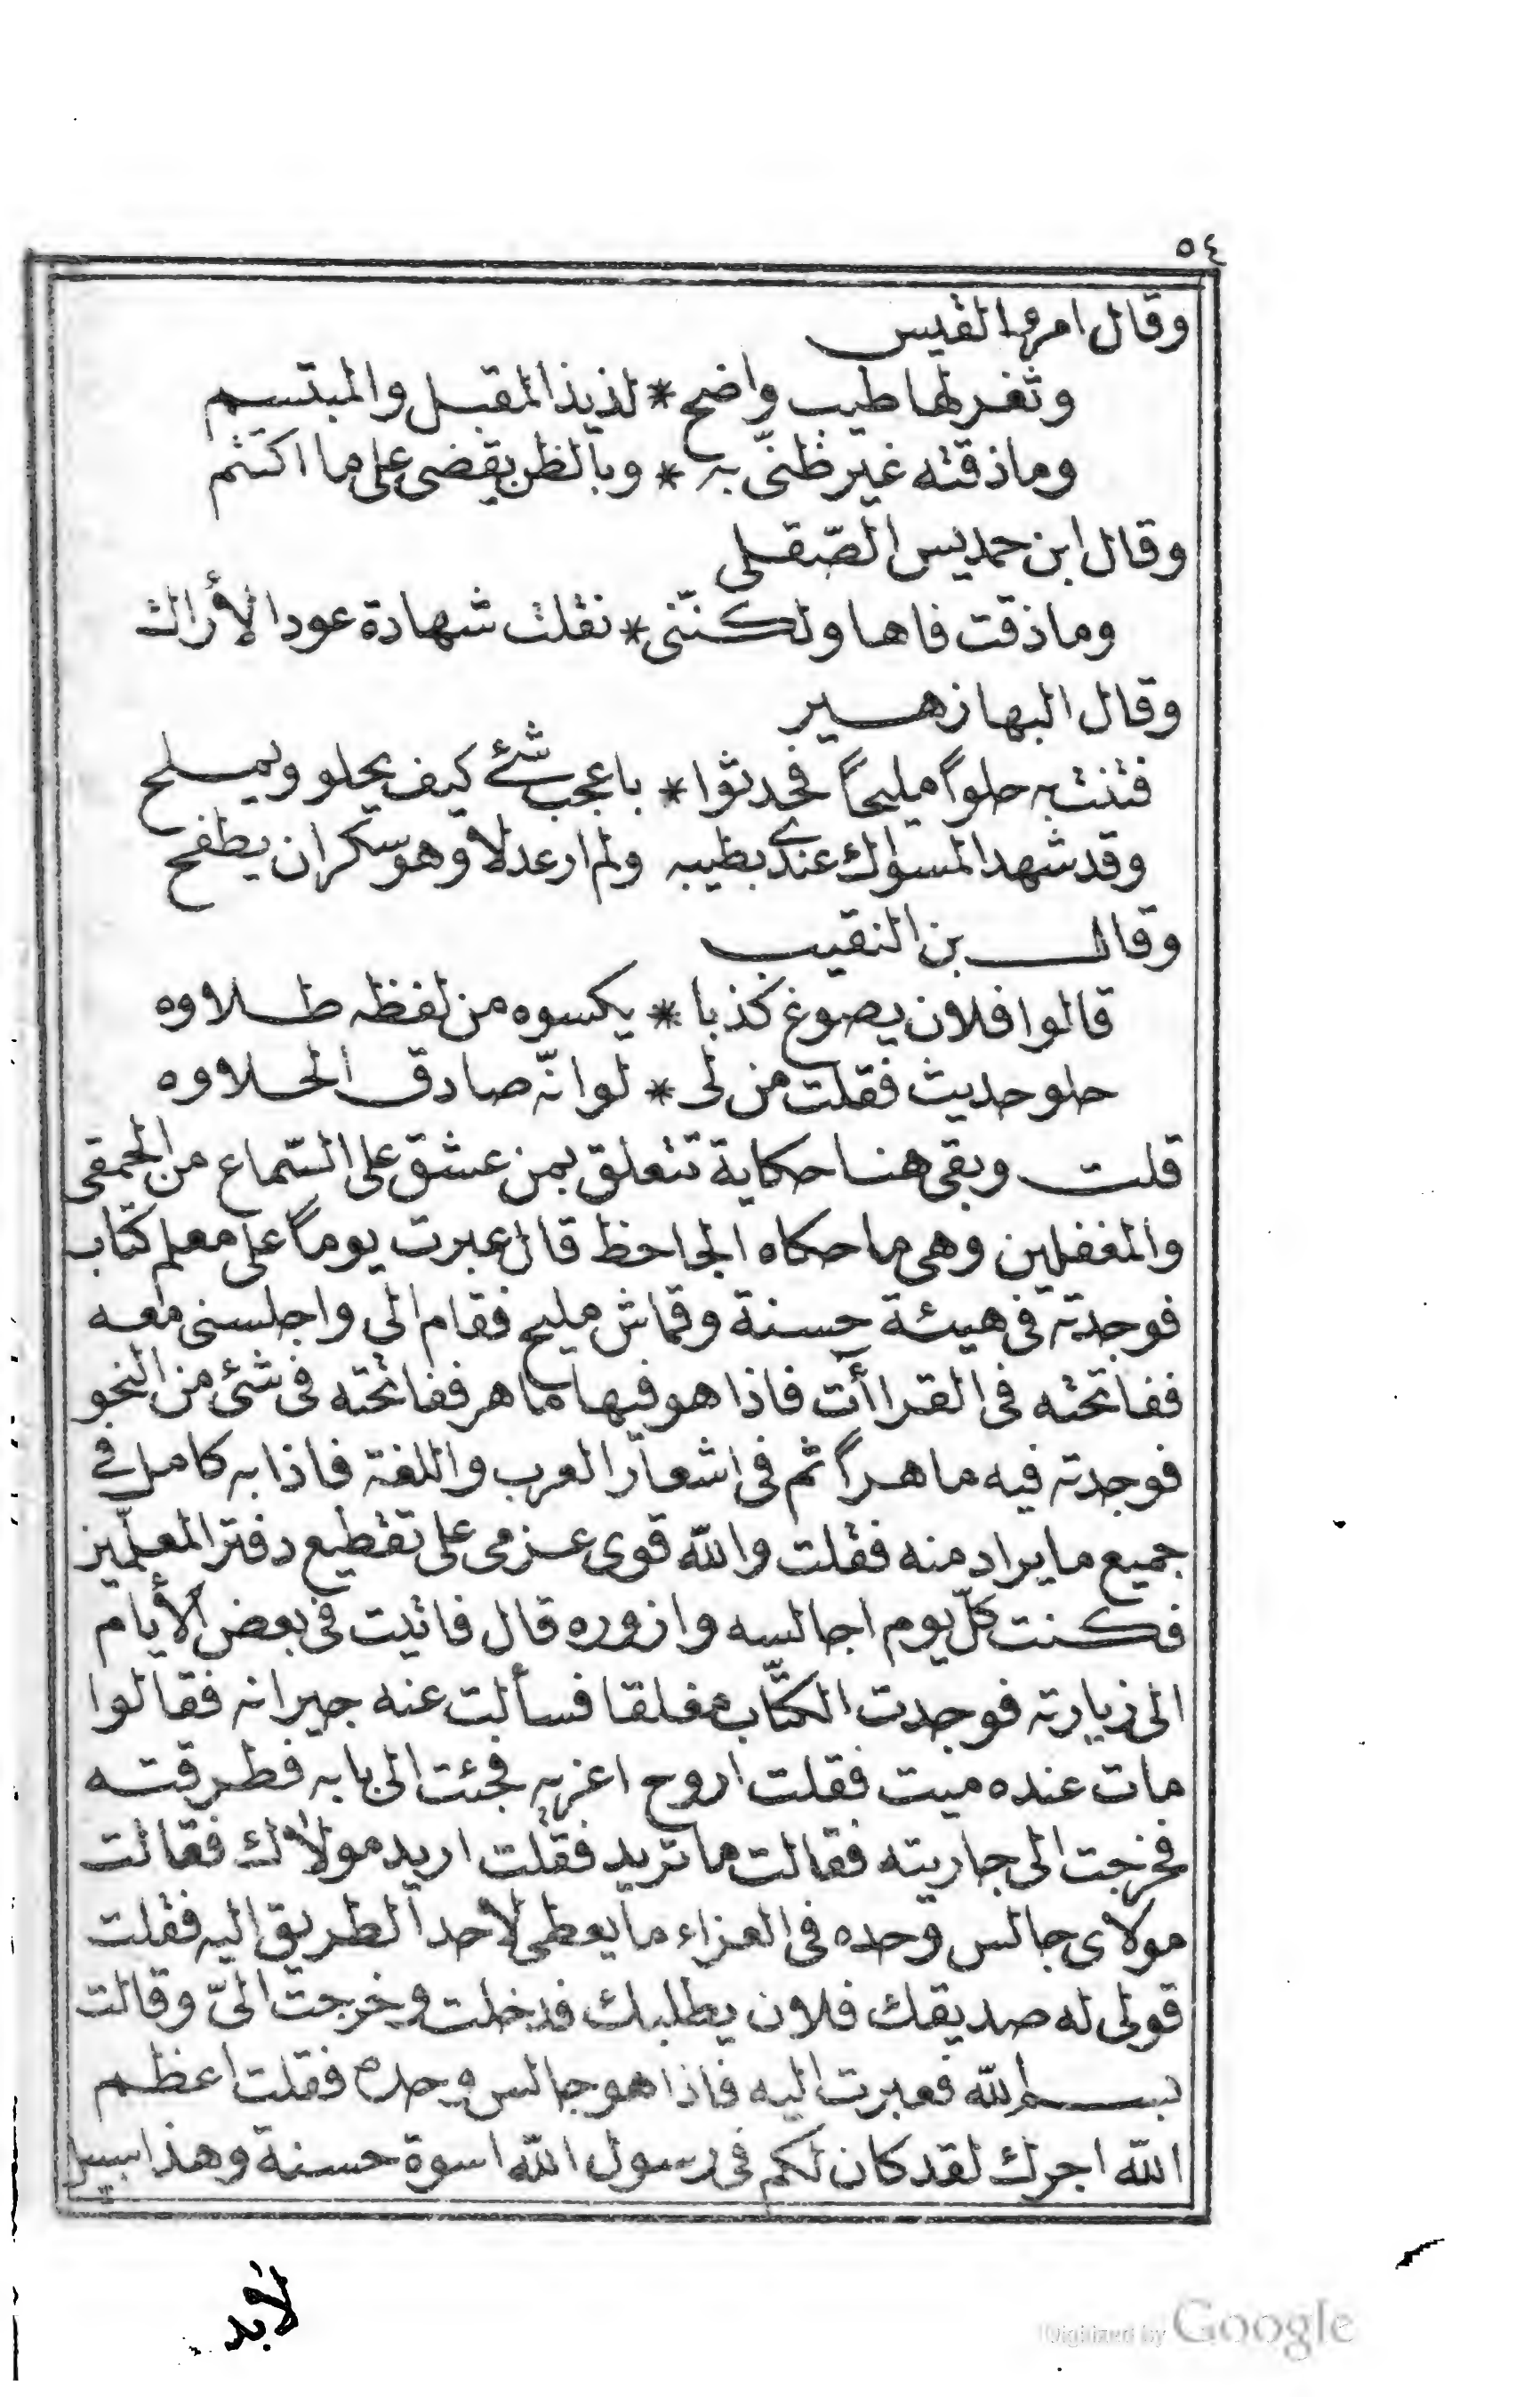 ٥٤
وقال امرؤ القيس
وثغر لها طيب واضح * لذيذ المقبل والمبتسم
وما ذقته غير ظنّي به * وبالظن يقضى على ما اكتتم
وقال ابن حمديس الصّقلى
وما ذقت فاها ولكنّنى * نقلت شهادة عود الأراك
وقال البها زهير
فتنت به حلواً مليحاً فحدثوا * باعجب شئ كيف يحلو ويملح
وقد شهد المسواك عندى بطيبه ولم ار عدلا وهو سكران يطفح
وقال بن النقيب
قالوا فلان يصوغ كذبا * يكسوه من لفظه طلاوه
حلو حديث فقلت من لى * لو انّه صادق الحلاوه
قلت وبقى هنا حكاية تتعلق بمن عشق على السّماع من الحمقى
والمغفلين وهى ما حكاه الجاحظ قال عبرت يوماً على معلم كتاب
فوجدته فى هيئة حسنة وقماش مليح فقام الي واجلسنى معه
ففاتحته فى القراأت فاذا هو فيها ماهر ففاتحته فى شئ من النحو
فوجدته فيه ماهراً ثم فى اشعار العرب واللغة فاذا به كامل في
جميع ما يراد منه فقلت والله قوى عزمى على تقطيع دفتر المعلّمين
فكنت كلّ يوم اجالسه وازوره قال فاتيت فى بعض الأيام
الى زيارته فوجدت الكتّاب مغلقا فسألت عنه جيرانه فقالوا
مات عنده ميت فقلت اروح اعزيه فجئت الى بابه فطرقته
فخرجت الى جاريته فقالت ما تريد فقلت اريد مولاك فقالت
مولاى جالس وحده فى العزاء ما يعطى لأحد الطريق اليه فقلت
قولى له صديقك فلان يطلبك فدخلت وخرجت الىّ وقالت
بسم الله فعبرت اليه فاذا هو جالس وحده فقلت اعظم
الله اجرك لقد كان لكم فى رسول الله اسوة حسنة وهذا سبيل
لابد
Digitized by Google